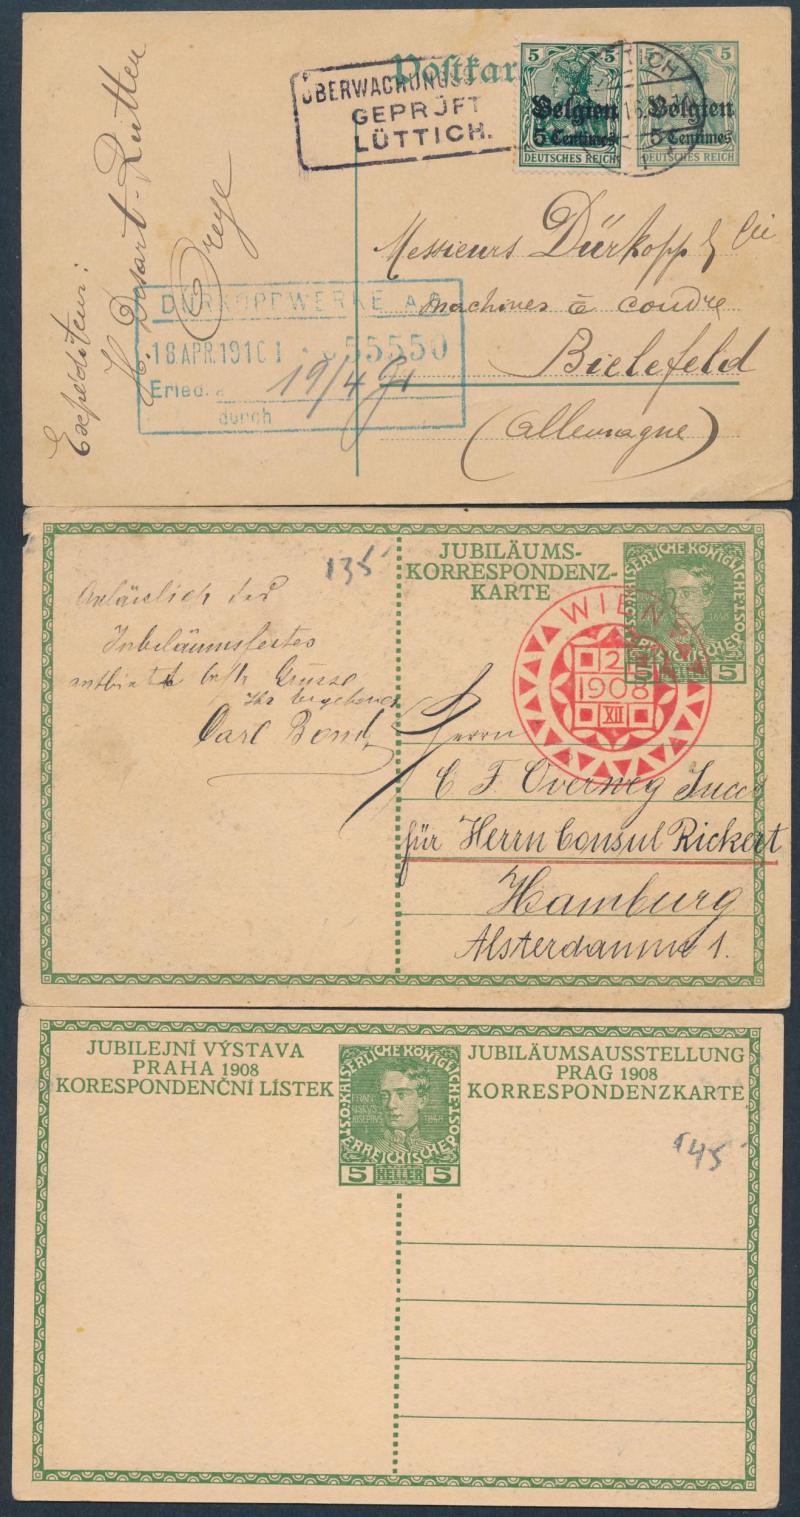 Postkar
ÜBERWACHUNGS
GEPRÜFT
LÜTTICH.
5 5
Belgien
5 Centimes
DEUTSCHES REICH
5 5
Belgien
5 Centimes
DEUTSCHES REICH
Expéditeur:
H. Desart-Rutten
Oreye
Messieurs Dürkopp & Cie
machines à coudre
Bielefeld
(Allemagne)
DÜRKOPPWERKE A.G.
18.APR.1916
55550
Erled. 19/4
durch
135
JUBILÄUMS-
KORRESPONDENZ-
KARTE
KAISERLICHE KÖNIGLICHE
ÖSTERREICHISCHE POST
5 5
WIEN
2
1908
XII
Anlässlich des
Jubiläumsfestes
Grüsse
Ihr ergebener
Carl
Herrn
C F Overweg Succ
für Herrn Consul Rickert
Hamburg
Alsterdamm 1.
JUBILEJNÍ VÝSTAVA
PRAHA 1908
KORESPONDENČNÍ LÍSTEK
KAISERLICHE KÖNIGLICHE
ÖSTERREICHISCHE POST
FRAN
CISCVS
IOSEPHVS
1848
5 HELLER 5
JUBILÄUMSAUSSTELLUNG
PRAG 1908
KORRESPONDENZKARTE
145